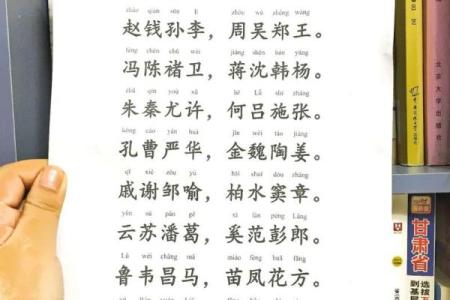 zhào qián sūn lǐ zhōu wú zhèng wáng
赵钱孙李，周吴郑王。
féng chén chǔ wèi jiǎng shěn hán yáng
冯陈褚卫，蒋沈韩杨。
zhū qín yóu xǔ hé Lǚ shī zhāng
朱秦尤许，何吕施张。
kǒng cáo yán huà jīn wèi táo jiāng
孔曹严华，金魏陶姜。
qī xiè zōu yù bǎi shuǐ dòu zhāng
戚谢邹喻，柏水窦章。
yún sū pān gě xī fàn péng láng
云苏潘葛，奚范彭郎。
Lǔ wéi chāng mǎ miáo fèng huā fāng
鲁韦昌马，苗凤花方。
北京大学出版社
甘肃省
选拔
到基层